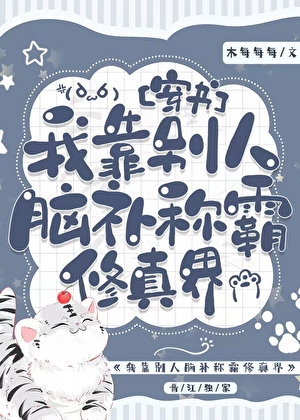 木每每每/文
[穿书]
我靠别人
脑补称霸
修真界
《我靠别人脑补称霸修真界》
晋江独家